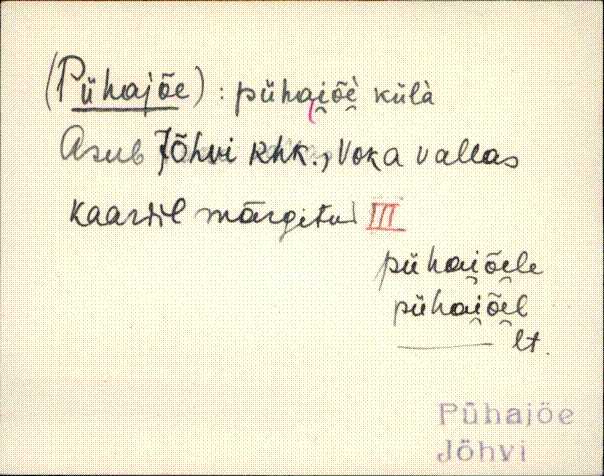 (Pühajõe) : pühai̯õè̯ külà
Asub Jõhvi khk., Voka vallas
kaardil märgitud III
pühai̯õe̯le
pühai̯õe̯l
lt.
Pühajõe
Jõhvi